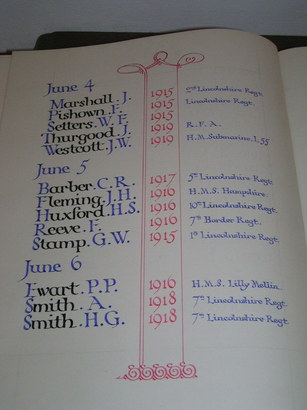 June 4
Marshall. J. 1915 2nd Lincolnshire Regt.
Pishown. F. 1915 Lincolnshire Regt.
Setters. W. F. 1915
Thurgood. J. 1919 R. F. A.
Westcott. J.W. 1919 H.M. Submarine. L. 55
June 5
Barber. C. R. 1917 5th Lincolnshire Regt.
Fleming. J.H. 1916 H.M.S. Hampshire.
Huxford. H.S. 1916 10th Lincolnshire Regt.
Reeve. F. 1916 7th Border Regt.
Stamp. G.W. 1915 1st Lincolnshire Regt.
June 6
Ewart. P.P. 1916 H.M.S. Lilly Mellia.
Smith. A. 1918 7th Lincolnshire Regt.
Smith. H.G. 1918 7th Lincolnshire Regt.